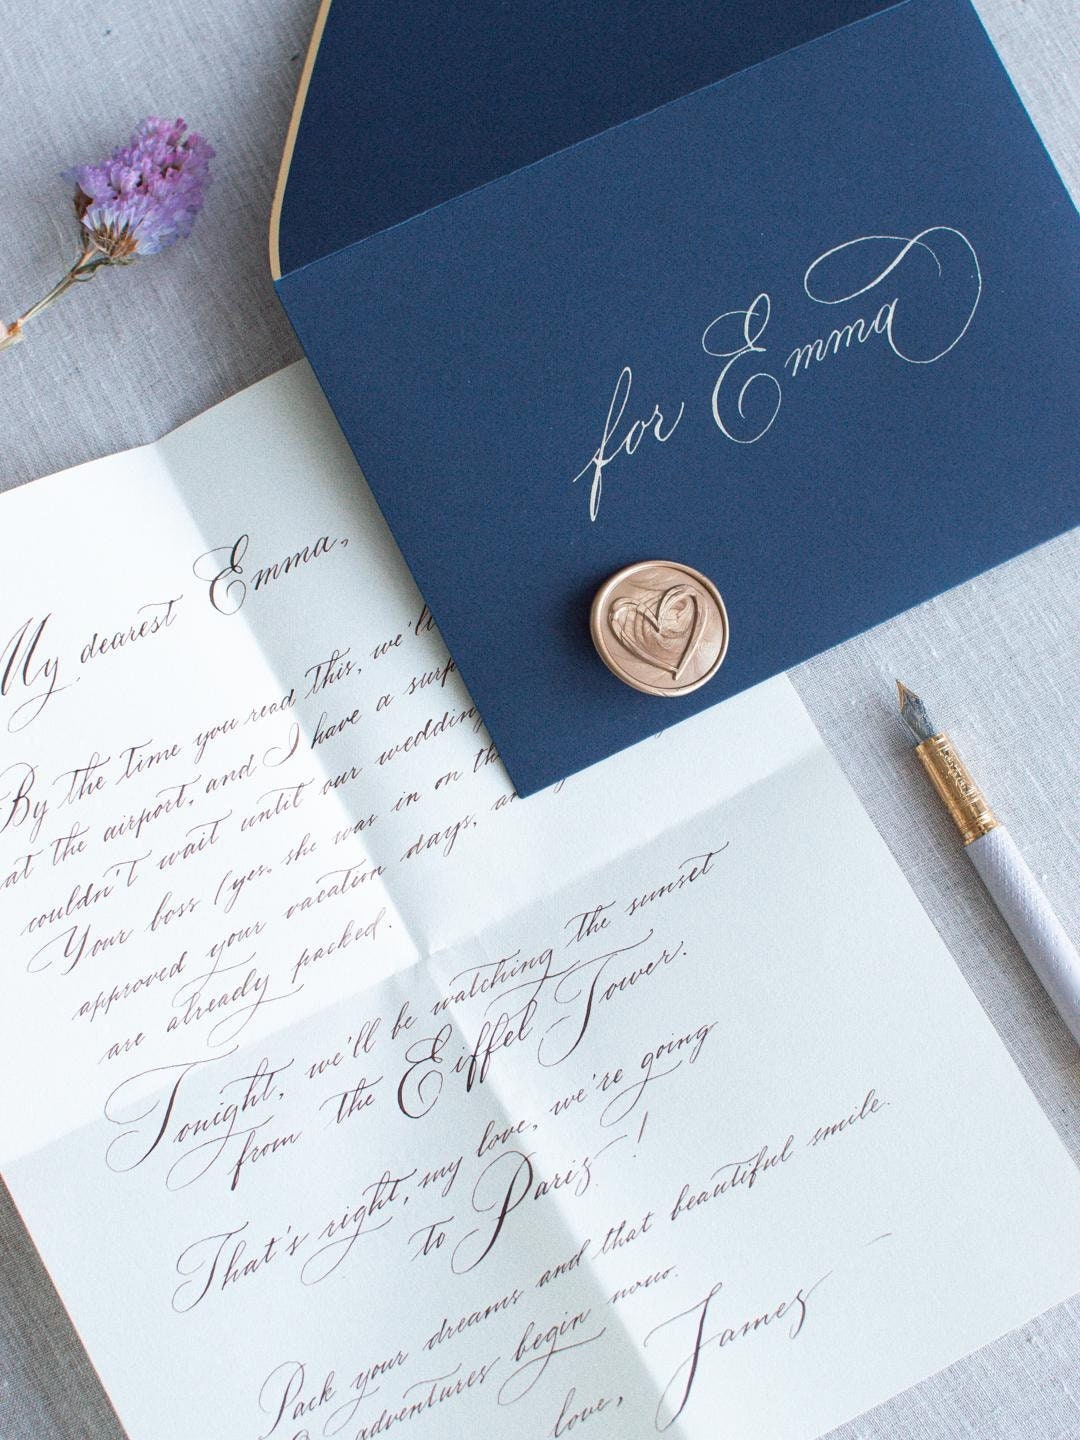 for Emma
My dearest Emma,
By the time you read this, we'll
at the airport, and I have a surp
couldn't wait until our wedding
Your boss (yes, she was in on th
approved your vacation days, an
are already packed.
Tonight, we'll be watching the sunset
from the Eiffel Tower.
That's right, my love, we're going
to Paris!
Pack your dreams and that beautiful smile.
adventures begin now.
love,
James